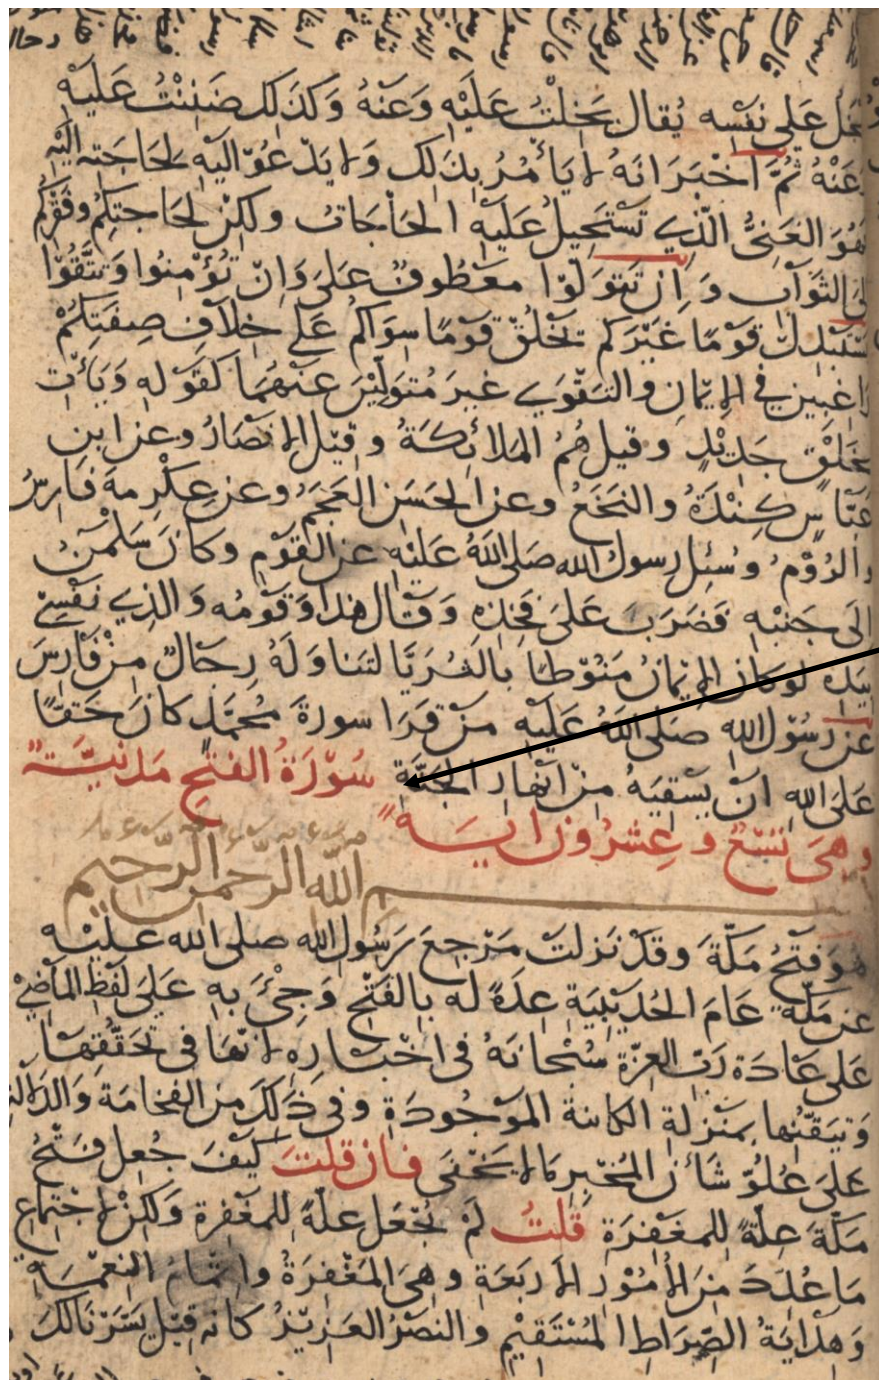 يبخل على نفسه يُقال بَخِلْتُ عَلَيْهِ وَعَنْهُ وَكَذَلِكَ ضَنِنْتُ عَلَيْهِ
وَعَنْهُ ثُمَّ اَخْبَرَ اَنَهُ لا يَأْمُرُ بِذَلِكَ وَلا يَدْعُوْ اليْهِ لِحَاجَتِهِ اِلَيْهِ
فَهُوَ الغَنِىُّ الَّذِي تَسْتَحِيلُ عَلَيْهِ الحَاجَاتُ وَلكِنْ لِحَاجَتِكُمْ وَفَقْرِكُمْ
اِلَى الثَوَابِ وَاِنْ تَتَوَلَّوْا مَعْطُوفٌ عَلَى وَاِنْ تُؤْمِنُوا وَتَتَّقُوْا
يَسْتَبْدِلْ قَوْمًا غَيْرَكُمْ يَخْلُقْ قَوْمًا سِوَاكُمْ عَلَى خِلَافِ صِفَتِكُمْ
رَاغِبِينَ فِي الاِيْمَانِ وَالتَقْوَى غَيْرَ مُتَوَلِّيْنَ عَنْهُمَا كَقَوْلِهِ وَيَأتِ
بِخَلْقٍ جَدِيْدٍ وَقِيل هُمُ المَلائِكَةُ وَقِيْلَ الاِنْصَارُ وَعَنِ ابْنِ
عَبَّاسٍ كِنْدَةُ وَالنَخَعُ وَعَنِ الحَسَنِ العَجَمُ وَعَنْ عِكْرِمَةَ فَارِسُ
وَالرُوْمُ وَسُئِلَ رَسُولُ الله صَلَّى اللهُ عَلَيْهِ عَنِ القَوْمِ وَكَانَ سَلْمٰنُ
اِلَى جَنْبِهِ فَضَرَبَ عَلَى فَخِذِهِ وَقَالَ هَذَا وَقَوْمُه وَالَّذِي نَفْسِيْ
بِيَدِهِ لَوْ كَانَ الاِيْمَانُ مَنُوْطًا بِالثُرَيَّا لَتَنَاوَلَهُ رِجَالٌ مِنْ فَارِسَ
عَنْ رَسُوْلِ اللهِ صَلَّى اللهُ عَلَيْهِ مَنْ قَرَا سورةَ مُحَمَّدٍ كَانَ حَقًّا
عَلَى اللهِ اَنْ يَسْقِيَهُ مِنْ اَنْهَارِ الجَنَّةِ سُوْرَةُ الفَتْحِ مَدَنِيَّةٌ
وَهِىَ تِسْعٌ وَعِشْرُوْنَ ايَةً
بسم اللهِ الرَّحْمٰنِ الرَّحِيْمِ
هُوَ فَتْحُ مَكَّةَ وَقَدْ نَزَلَتْ مَرْجِعَ رَسُولِ اللهِ صلى الله عَلَيْهِ
عَنْ مَكَّةَ عَامَ الحُدَيْبِيَةِ عِدَةً لَه بِالفَتْحِ وَجِىْءَ بِهِ عَلَى لَفْظِ المَاضِيْ
عَلَى عَادَةِ رَبِّ العِزَّةِ سُبْحَانَهُ فِى اَخْبَارِهِ لِانَّهَا فِى تَحَقُّقِهَا
وَتَيَقُّنِهَا بِمَنْزِلَةِ الكَائِنَةِ المَوْجُودَةِ وَفِى ذَلِكَ مِنَ الفَخَامَةِ وَالدَلَالَةِ
عَلَى عُلُوِّ شَأنِ المُخْبِرِ مَا لا يَخْفَى فَاِنْ قُلْتَ كَيْفَ جُعِلَ فَتْحُ
مَكَّةَ عِلَّةً لِلْمَغْفِرَةِ قُلْتُ لَمْ يُجْعَلْ عِلَّةً لِلمَغْفِرَةِ وَلكِنْ لِاجْتِمَاعِ
مَا عُدِّدَ مِنَ الاُمُوْرِ الاَرْبَعَةِ وَهِىَ المَغْفِرَةُ وَاِتْمَامُ النِعْمَةِ
وَهِدَايَةُ الصِّرَاطِ المُسْتَقِيْمِ وَالنَصْرُ العَزِيْزُ كَانَه قِيْلَ يَسَّرْنَا لَكَ